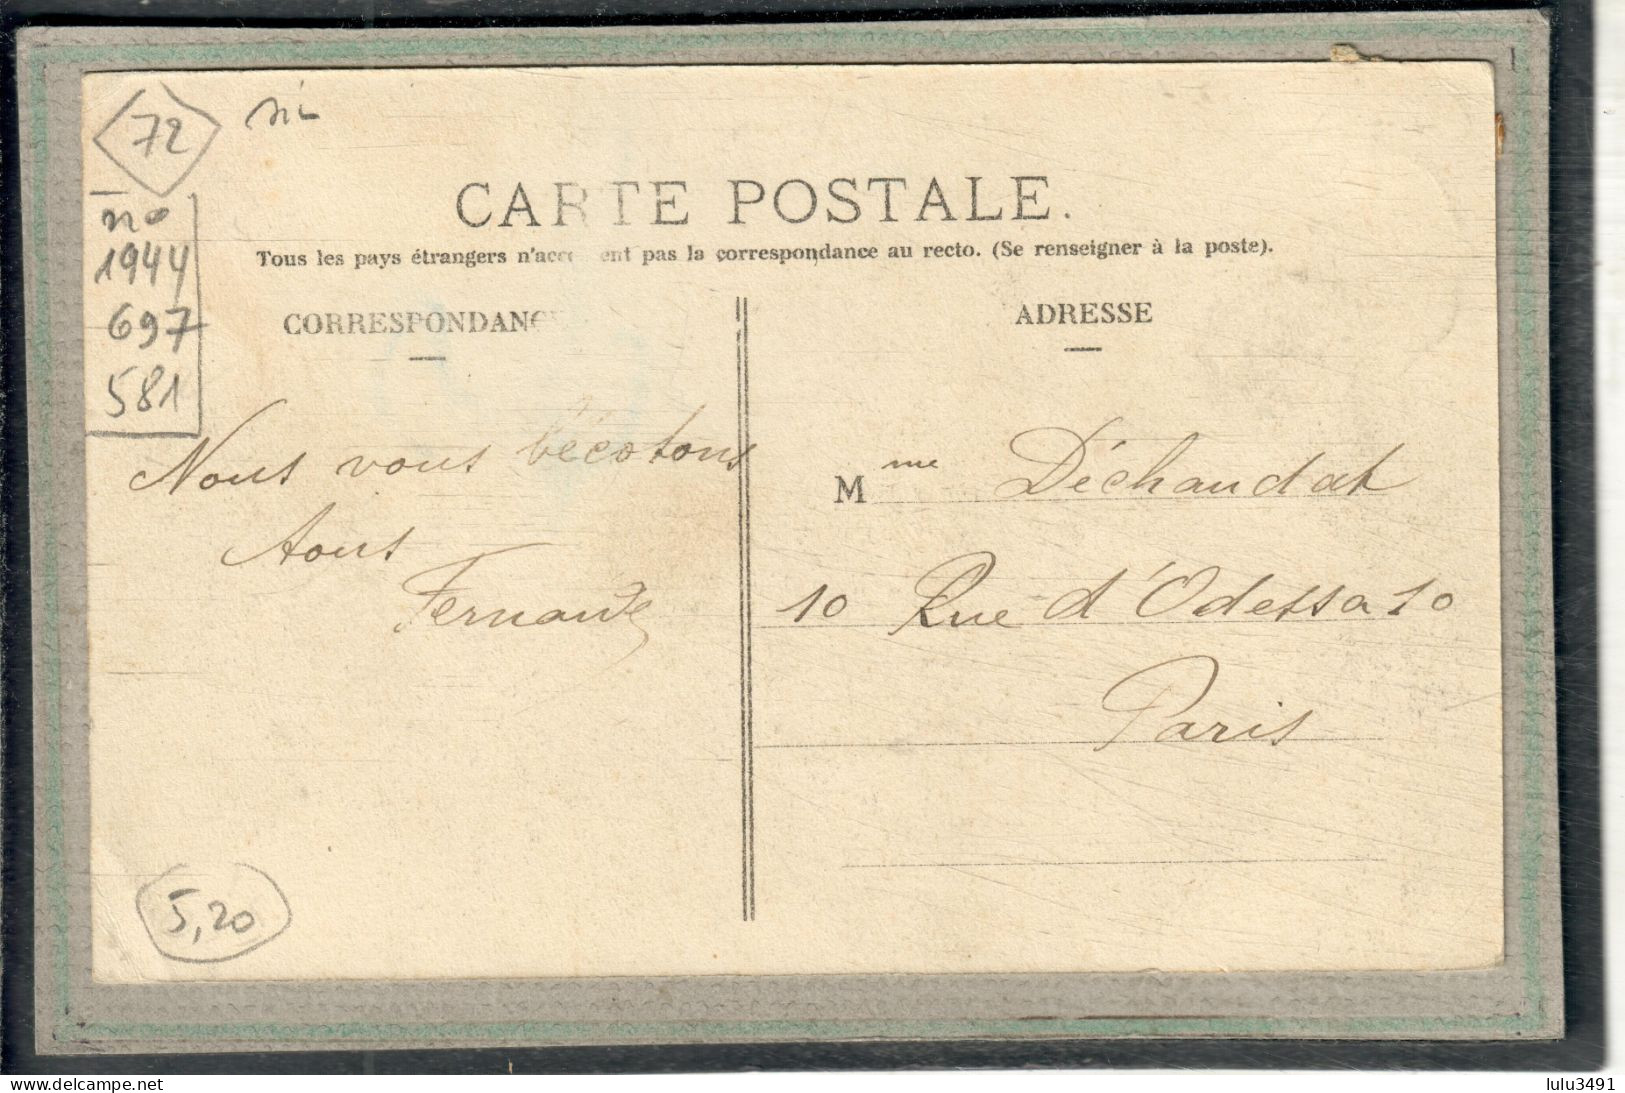 72
no
1944
697
581
CARTE POSTALE.
Tous les pays étrangers n'acceptent pas la correspondance au recto. (Se renseigner à la poste).
CORRESPONDANCE
Nous vous bécotons
tous
Fernande
ADRESSE
Mme Déchaudat
10 Rue d'Odessa 10
Paris
5,20
https://www.delcampe.net
lulu3491